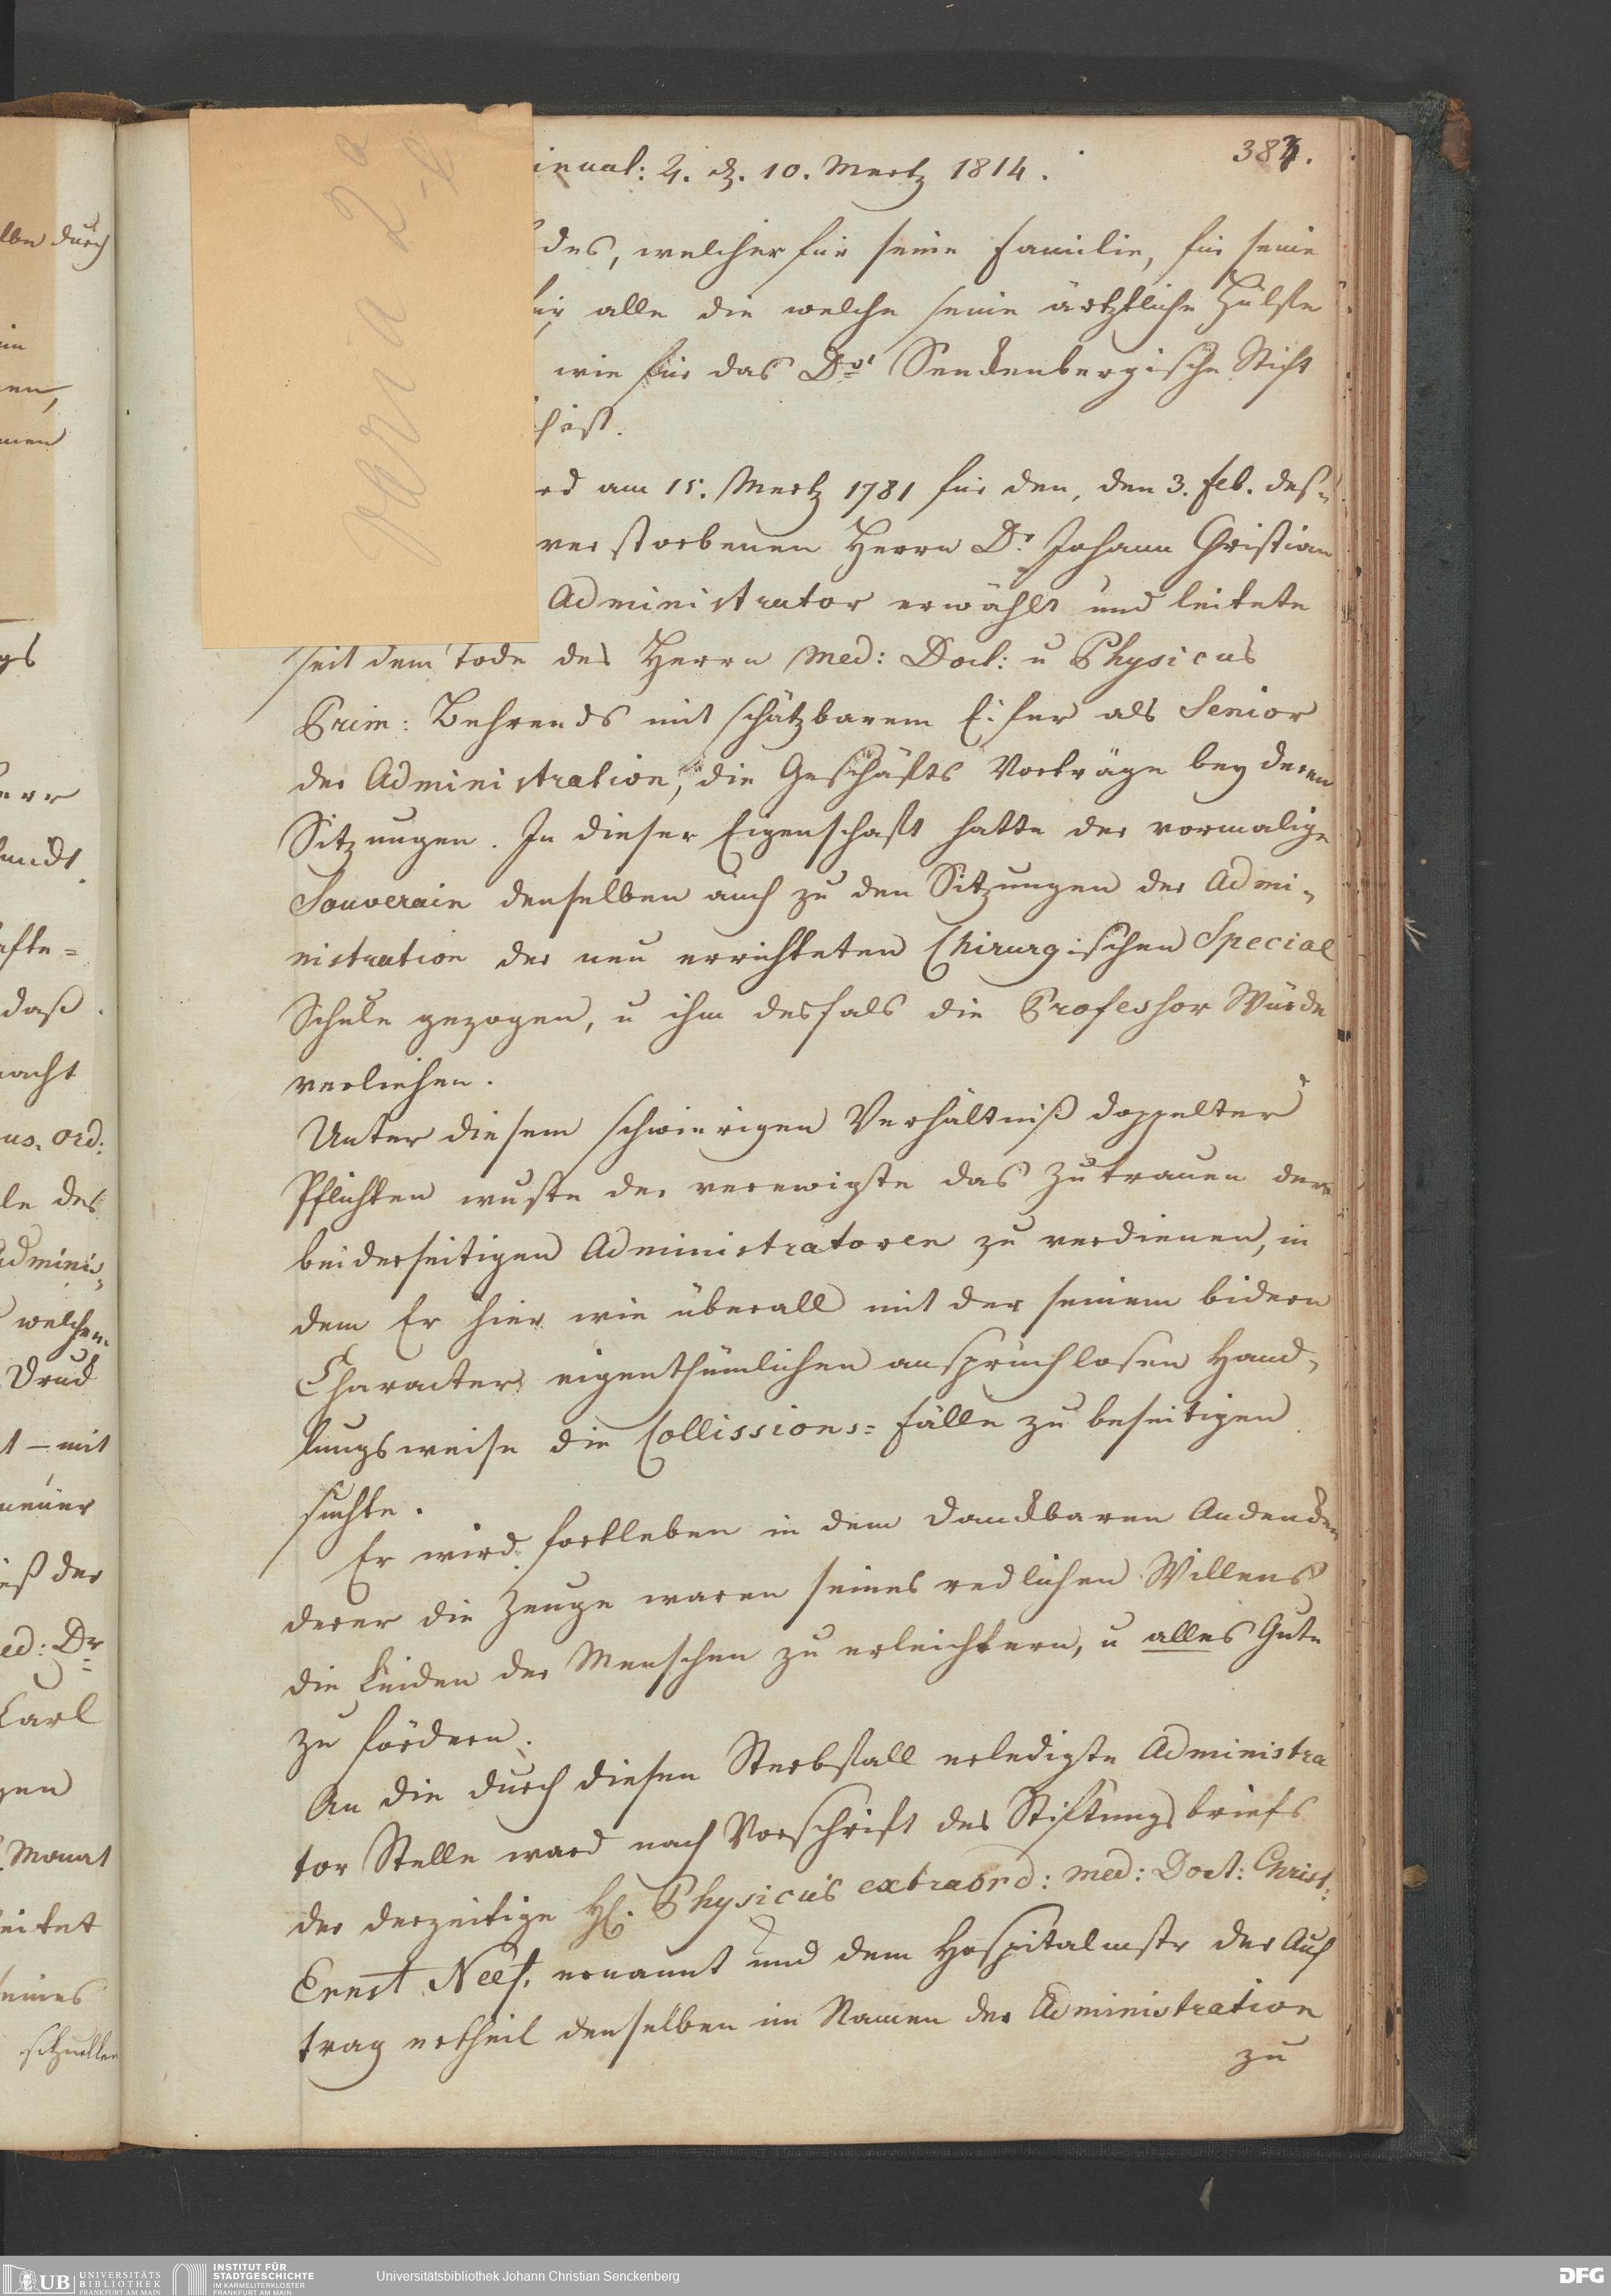 383.
inual: 2. d. 10. Mertz 1814.
des, welcher für seine Familie, für seine
für alle die welche seine ärtztliche Hülfe
wie für das Dr Senckenbergische Stift
ist.
rd am 15. Mertz 1781 für den, den 3. Feb. des=
verstorbenen Herrn Dr. Johann Christian
Administrator erwählt und leitete
seit dem Tode des Herrn Med: Doct: u Physicus
Prim: Behrends mit schätzbarem Eifer als Senior
der Administration, die Geschäfts Vorträge bey deren
Sitzungen. In dieser Eigenschaft hatte der vormalige
Souverain denselben auch zu den Sitzungen der Admi=
nistration der neu errichteten Chirurgischen Special
Schule gezogen, u ihm desfals die Professor Würde
verliehen.
Unter diesem schwierigen Verhältniß doppelter
Pflichten wuste der verewigte das Zutrauen der
beiderseitigen Administratoren zu verdienen, in
dem Er hier wie überall mit der seinem bidern
Character eigenthümlichen anspruchlosen Hand=
lungsweise die Collissions=Fälle zu beseitigen
suchte.
Er wird fortleben in dem danckbaren Andencken
derer die Zeuge waren seines redlichen Willens
die Leiden der Menschen zu erleichtern, u alles Gute
zu fördern.
An die durch diesen Sterbfall erledigte Administra
tor Stelle ward nach Vorschrift des Stiftungsbriefs
der derzeitige H. Physicus extraord: med: Doct: Christ:
Ernst Neef, ernannt und dem Hospitalmstr der Auf
trag ertheil denselben im Namen der Administration
zu
UB UNIVERSITÄTS
BIBLIOTHEK
FRANKFURT AM MAIN
INSTITUT FÜR
STADTGESCHICHTE
IM KARMELITERKLOSTER
FRANKFURT AM MAIN
Universitätsbibliothek Johann Christian Senckenberg
DFG